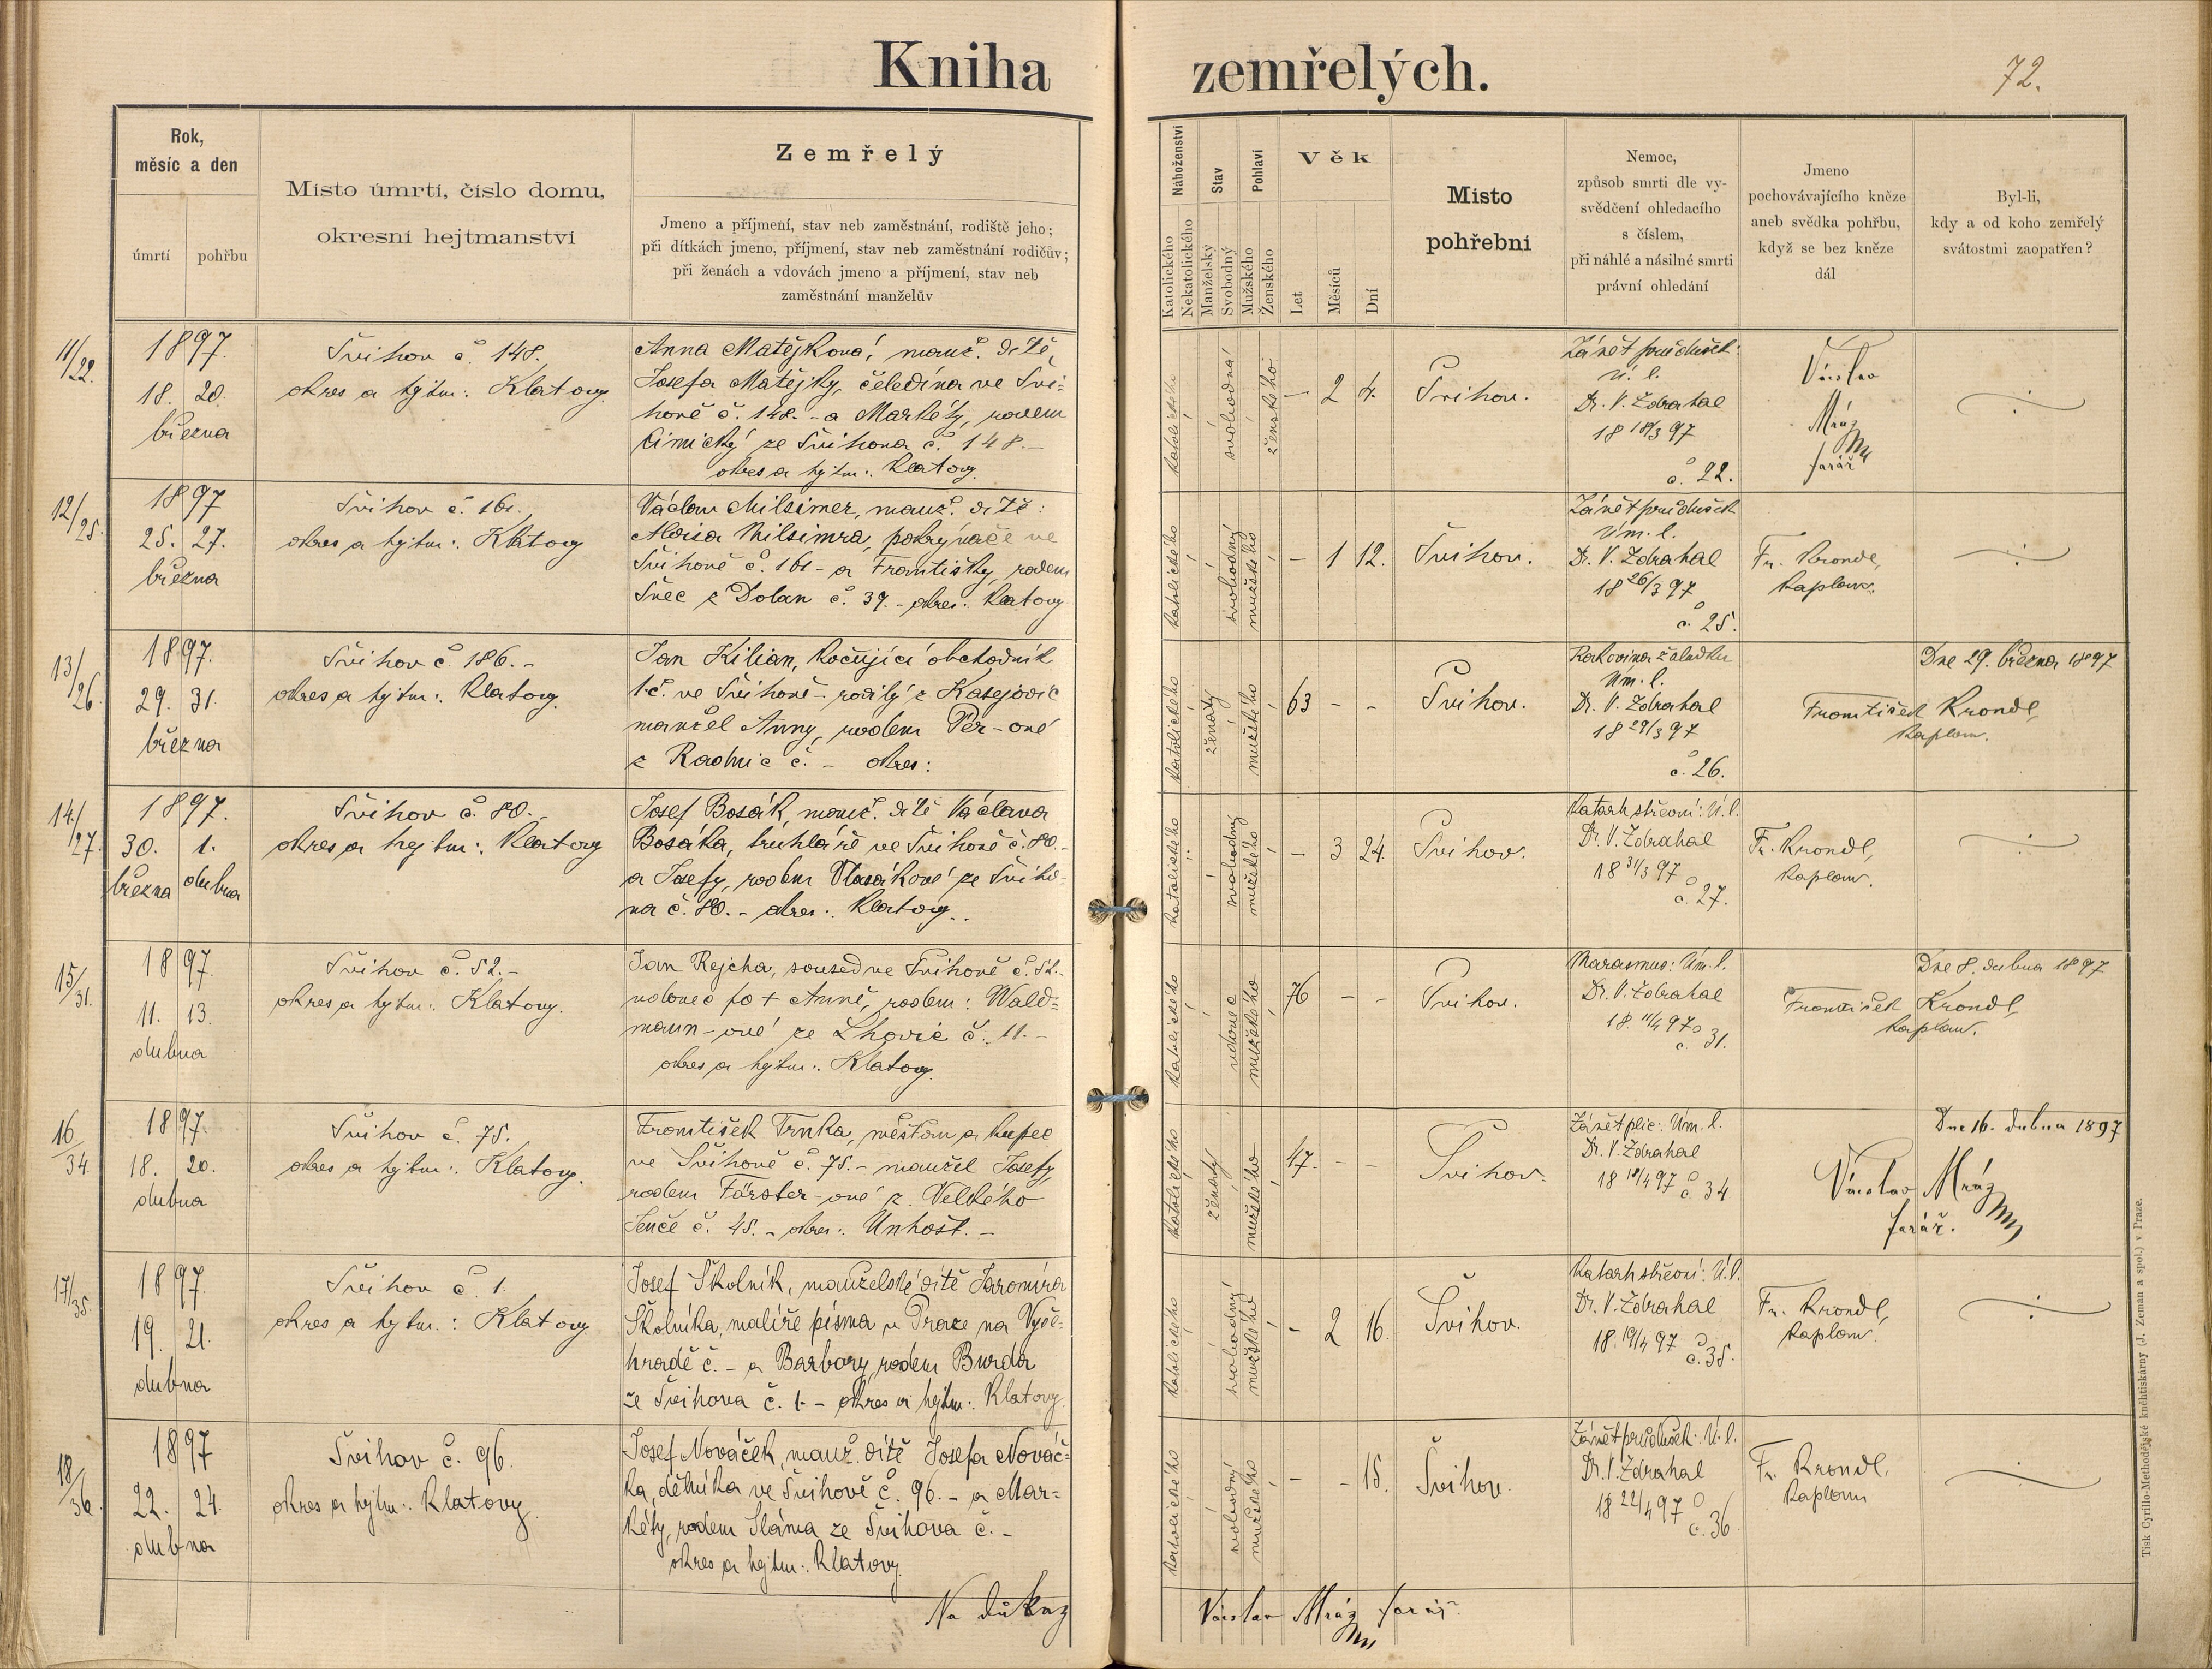 Kniha zemřelých.
72.
Rok,
měsíc a den
úmrtí
pohřbu
Místo úmrtí, číslo domu,
okresní hejtmanství
Zemřelý
Jmeno a příjmení, stav neb zaměstnání, rodiště jeho;
při dítkách jmeno, příjmení, stav neb zaměstnání rodičův;
při ženách a vdovách jmeno a příjmení, stav neb
zaměstnání manželův
Náboženství
Katolického
Nekatolického
Stav
Manželský
Svobodný
Pohlaví
Mužského
Ženského
Věk
Let
Měsíců
Dní
Místo
pohřební
Nemoc,
způsob smrti dle vy-
svědčení ohledacího
s číslem,
při náhlé a násilné smrti
právní ohledání
Jmeno
pochovávajícího kněze
aneb svědka pohřbu,
když se bez kněze
dál
Byl-li,
kdy a od koho zemřelý
svátostmi zaopatřen?
11/22.
1897.
18. 20.
března
Švihov č. 148.
okres a hejtm.: Klatovy.
Anna Matějková, manž. dítě,
Josefa Matějky, čeledína ve Švi-
hově č. 148. - a Markéty, rodem
Cimický ze Švihova č. 148. -
okres a hejtm.: Klatovy.
katolického
svobodná
ženského
- 2 4.
Švihov.
Zánět průdušek:
Ú. l.
Dr. V. Zdrahal
18 18/3 97
č. 22.
Václav
Mráz
farář
12/25.
1897
25. 27.
března
Švihov č. 161.
okres a hejtm.: Klatovy
Václav Milsimer, manž. dítě:
Aloisa Milsimra, pokrývače ve
Švihově č. 161 - a Františky, rodem
Švec z Dolan č. 39. - okres: Klatovy
katolického
svobodný
mužského
- 1 12.
Švihov.
Zánět průdušek
Úm. l.
Dr. V. Zdrahal
18 26/3 97
č. 25.
Fr. Krondl,
kaplan.
13/26
1897.
29. 31.
března
Švihov č. 186. -
okres a hejtm.: Klatovy.
Jan Kilian, kočující obchodník
t. č. ve Švihově - rodilý z Kasejovic
manžel Anny, rodem Pér-ové
z Radnic č. - okres:
katolického
ženatý
mužského
63 - -
Švihov.
Rakovina žaludku
Úm. l.
Dr. V. Zdrahal
18 29/3 97
č. 26.
Dne 29. března 1897
František Krondl,
kaplan.
14./27.
1897.
30. 1.
března dubna
Švihov č. 80. -
okres a hejtm.: Klatovy
Josef Bosák, manž. dítě Václava
Bosáka, truhláře ve Švihově č. 80. -
a Josefy, rodem Vlasákové ze Šviho-
va č. 80. - okres: Klatovy.
katolického
svobodný
mužského
- 3 24.
Švihov.
Katarh střevní: Ú. l.
Dr. V. Zdrahal
18 31/3 97
č. 27.
Fr. Krondl,
kaplan.
15/31.
1897.
11. 13.
dubna
Švihov č. 52. -
okres a hejtm.: Klatovy.
Jan Rejcha, soused ve Švihově č. 52. -
vdovec po + Anně, rodem: Wald-
mann-ové ze Lhovic č. 11. -
okres a hejtm.: Klatovy.
katolického
vdovec
mužského
76 - -
Švihov.
Marasmus: Úm. l.
Dr. V. Zdrahal
18. 11/4 97
č. 31.
Dne 8. dubna 1897
František Krondl,
kaplan.
16/34
1897.
18. 20.
dubna
Švihov č. 75.
okres a hejtm.: Klatovy.
František Trnka, měšťan a kupec
ve Švihově č. 75. - manžel Josefy,
rodem Förster-ové z Velkého
Jenče č. 45. - okres: Unhošť. -
katolického
ženatý
mužského
47. - -
Švihov.
Zánět plic: Úm. l.
Dr. V. Zdrahal
18 18/4 97 č. 34
Dne 16. dubna 1897
Václav Mráz
farář.
17/35.
1897.
19. 21.
dubna
Švihov č. 1.
okres a hejtm.: Klatovy
Josef Školník, manželské dítě Jaromíra
Školníka, malíře písma v Praze na Vyše-
hradě č. - a Barbory, rodem Burda
ze Švihova č. 1. - okres a hejtm.: Klatovy.
katolického
svobodný
mužského
- 2 16.
Švihov.
Katarh střevní: Ú. l.
Dr. V. Zdrahal
18. 19/4 97 č. 35.
Fr. Krondl,
kaplan.
18/36.
1897
22. 24.
dubna
Švihov č. 96.
okres a hejtm.: Klatovy.
Josef Nováček, manž. dítě Josefa Nováč-
ka, dělníka ve Švihově č. 96. - a Mar-
kéty, rodem Sláma ze Švihova č. -
okres a hejtm.: Klatovy.
katolického
svobodný
mužského
- - 15.
Švihov.
Zánět průdušek: Ú. l.
Dr. V. Zdrahal
18 22/4 97
č. 36
Fr. Krondl,
kaplan
Na důkaz
Václav Mráz farář
Tisk Cyrillo-Methodějské knihtiskárny (J. Zeman a spol.) v Praze.